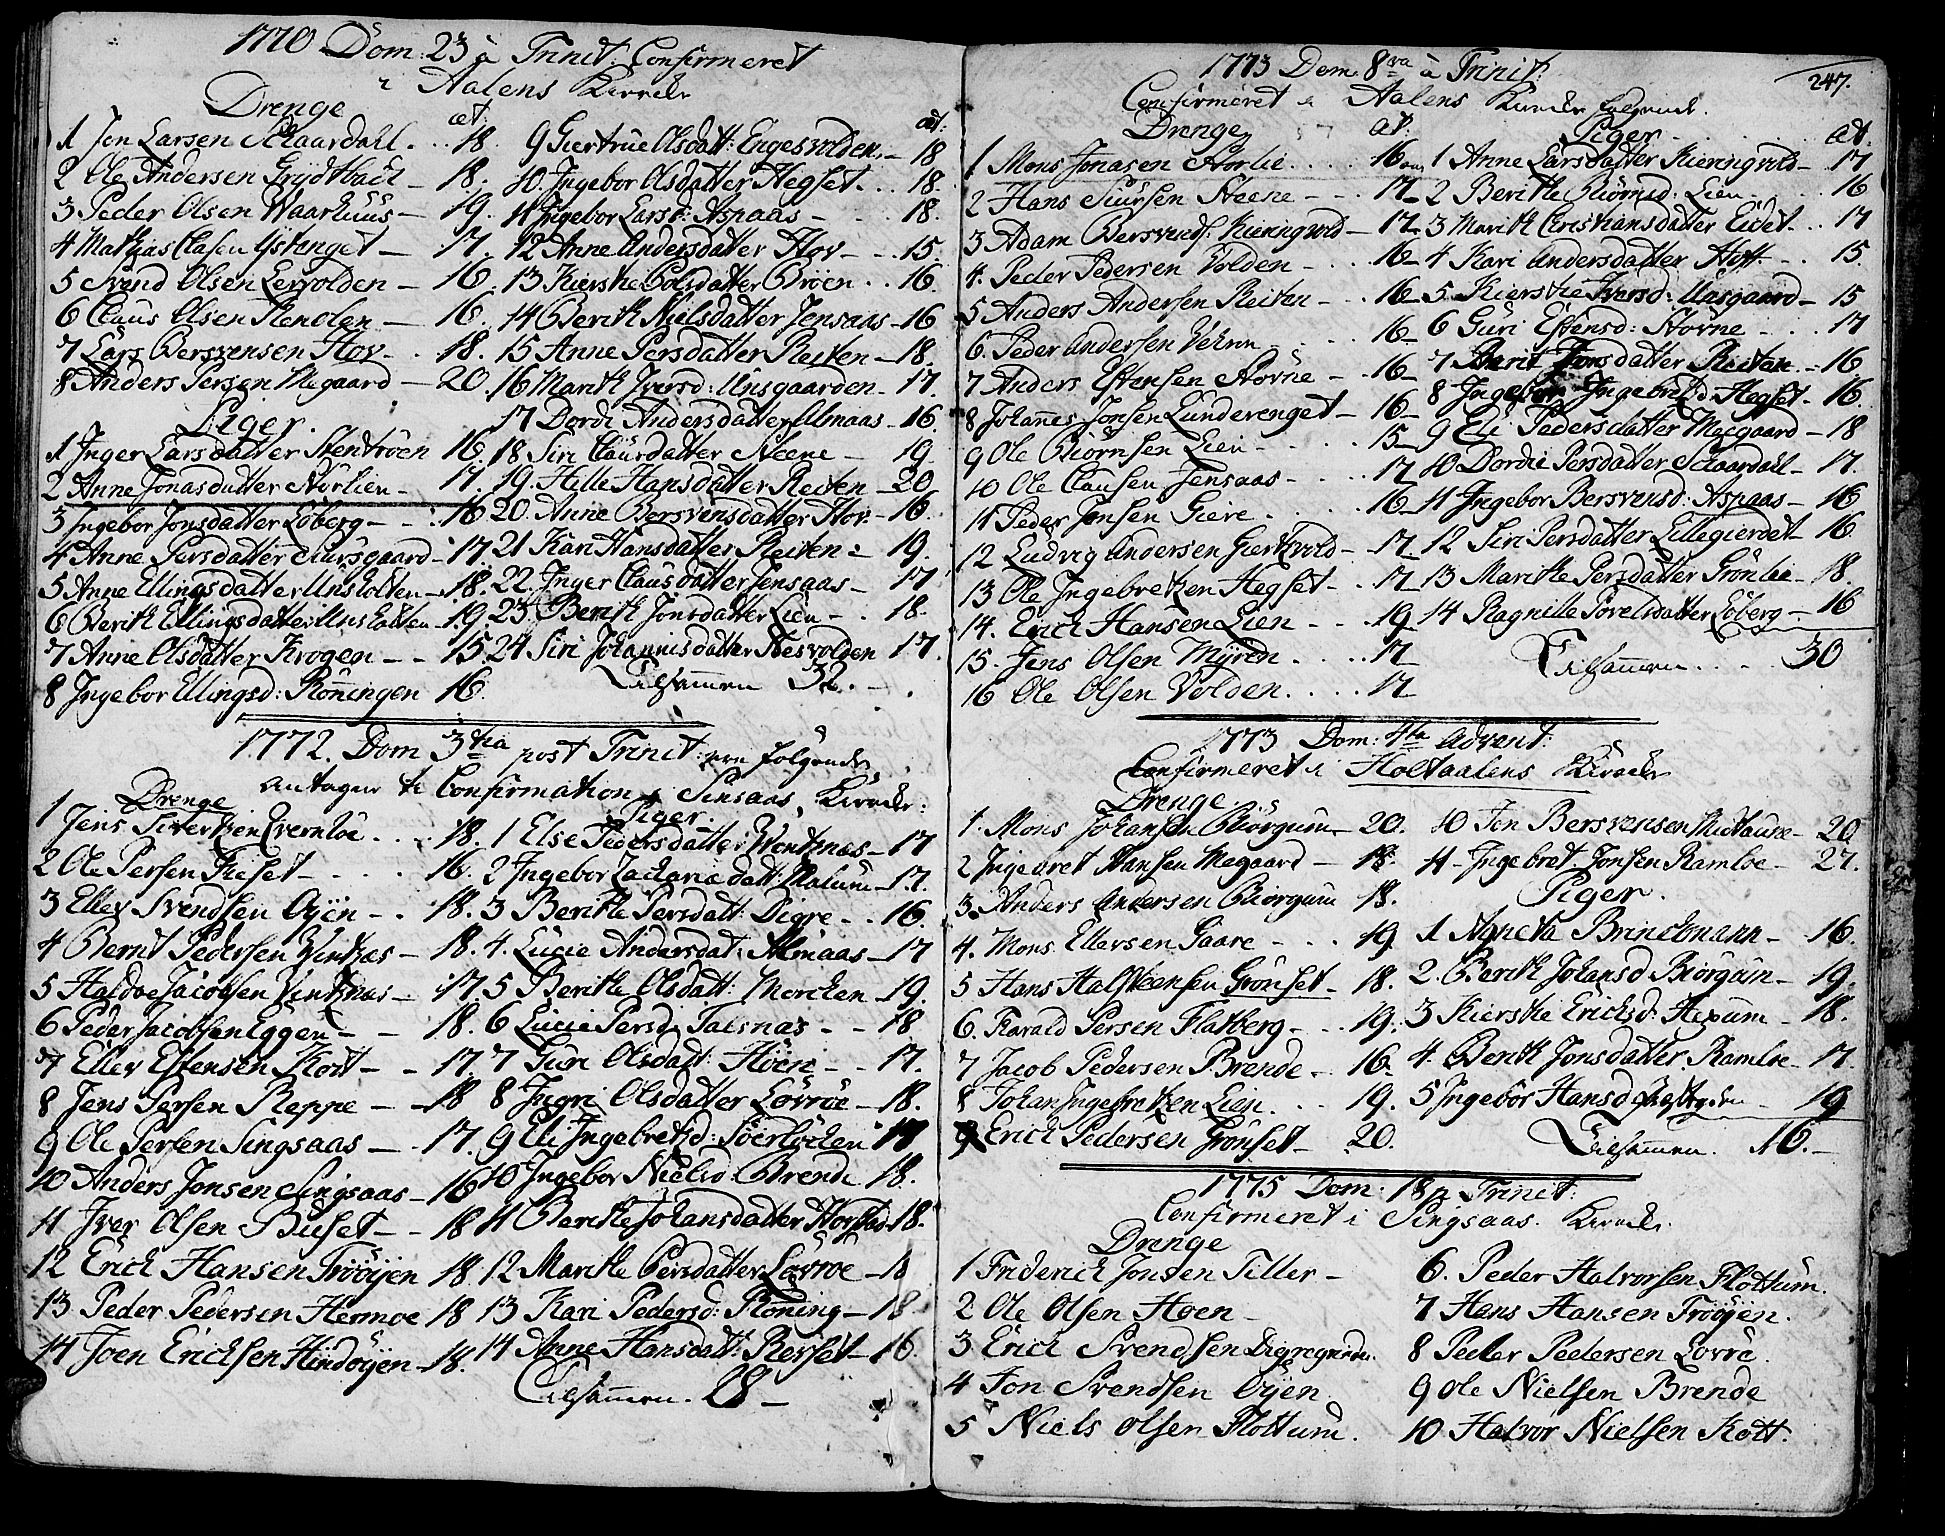 1770 Dom: 23 à Trinit: Confirmeret
i Aalens Kircke
Drenge æt:
1 Jon Larsen Schaardahl . . . 18.
2 Ole Andersen Grydtbach – 18.
3 Peder Olsen Waarhuus – 19.
4 Mathias Clasen Ystenget – 17.
5 Svend Olsen Lervolden – 16.
6 Claus Olsen Renolen – 16.
7 Lars Bersvensen Hov – 18.
8 Anders Persen Megaard – 20.
Piger.
1 Inger Larsdatter Stentroen 16.
2 Anne Jonasdatter Norlien – 17.
3 Ingebor Jonsdatter Løberg – – 16
4 Anne Persdatter Aursgaard – 17.
5 Anne Ellingsdatter Unsholten – 18.
6 Berith Ellingsdatter Unsholten – 19
7 Anne Olsdatter Krogen – – 15
8 Ingebor Ellingsd: Rønningen 16.
æt:
9 Giertrue Olsdatt: Engesvolden – 18
10. Ingebor Olsdatter Hegset . . 18.
11 Ingebor Larsd: Aspaas – 18.
12 Anne Andersdatter Hov – – 15.
13 Kierstie Colsdatter Brøen . . 16.
14 Berith Nielsdatter Jensaas – 16
15 Anne Persdatter Reiten – 18.
16 Marith Iversd: Unsgaarden – 17.
17 Dordi Andersdatter Almaas – 16.
18 Siri Clausdatter Steene – 19.
19. Helle Hansdatter Reiten – 20
20. Anne Bersvensdatter Hov – 16.
21 Kari Hansdatter Reiten – 19.
22. Inger Clausdatter Jensaas – 17
23. Berith Jonsdatter Lien – . 18.
24 Siri Johannisdatter Nesvolden 17.
Tilsammen 32.
1772. Dom 3tia post Trinit: ere følgende
antagne til Confirmation i Sinsaas Kircke:
Drenge
1 Jens Sivertzen Evernboe . . . 18.
2 Ole Persen Kieset – . . . 16.
3 Ellev Svendsen Øyen – . 18.
4 Bernt Pedersen Winsnes – 18.
5 Haldoe Jacobsen Winsnes – 17.
6 Peder Jacobsen Eggen – – 18.
7 Ellev Estensen Kott – – 17.
8 Jens Persen Reppe – – 18
9 Ole Persen Singsaas – 17.
10 Anders Jonsen Singsaas – 16
11 Iver Olsen Buset – – 18
12 Erich Hansen Trøøyen 18.
13. Peder Pedersen Hermoe 18
14 Joen Erichsen Hindøyen – 18.
Piger.
1 Else Pedersdatter Wintsnes – 17
2 Ingebor Zachariedatt: Malum – 17.
3 Berithe Persdatt: Digre – . 16.
4. Lucie Andersdat: Almaas – 17
5 Berithe Olsdatt: Morchen – 19.
6 Lucie Persd. Talsnæs – – 18
7 Guri Olsdatt: Høen – – 17.
8 Ingri Olsdatter Løvrøe – 18.
9 Eli Ingebretsd: Soerløchen 17
10 Ingebor Nielsd. Brende 18.
11 Berithe Johansdatter Horstad – 18.
12 Marithe Persdatter Løvrøe – 18
13 Kari Pedersd: Rønning – 18
14 Anne Hansdatt: Refset – 16.
Tilsammen. 28 –
247.
1773 Dom. 8va à Trinit:
Confirmeret i Aalens Kircke følgende.
Drenge æt:
1 Mons Jonasen Norlie . . . 16
2 Hans Siursen Steene – – 17
3 Adam Bersvends: Kieringvold – 17
4. Peder Pedersen Volden – . . 16
5 Anders Andersen Reiten – . . 16
6. Peder Andersen Vehnn – . . 16
7 Anders Estensen Stovne – – 16
8 Johannes Jonsen Lunderenget – 16
9 Ole Biørnsen Lien – . . . 15
10 Ole Clausen Jensaas – . . 17
11 Peder Jonsen Giere . . . . 16
12 Ludvig Andersen Giertvold – 17
13 Ole Ingebretzen Hegset – . . 17
14. Erich Hansen Lien – . . . 19
15. Jens Olsen Myren . . . . 17
16 Ole Olsen Volden . . . . 17
Piger æt.
1 Anne Larsdatter Kieringvold – 17
2 Berithe Biørnsd: Lien – . . 16
3 Marith Christiansdatter Eidet – . 17
4 Kari Andersdatter Hoff – . 15
5. Kierstie Iversd: Unsgaard – 15
6 Guri Estensd: Stovne – . . . 17
7 Barit Jonsdatter Reitan . – 16
8 Ingebor Ingebretsd: Hegset – 16
9 Eli Pedersdatter Moegaard – 18
10 Dordie Persdatter Schaardahl – 17.
11 Ingebor Bersvensd: Aspaas – 16
12 Siri Persdatter Lillegierdet – 16
13 Marithe Persdatter Grønlie – 18.
14 Ragnille Povelsdatter Løberg – 16
Tilsammen . . . . 30
1773 Dom: 4ta Advent:
Confirmeret i Holtaalens Kircke
Drenge
1. Mons Johansen Biørgum – 20.
2 Ingebret Hansen Megaard – 18.
3. Anders Andersen Biørgum 18.
4. Mons Ellevsen Gaare – . . 19
5 Hans Halsteensen Grønset – 18.
6. Harald Persen Flatberg – . 19.
7 Jacob Pedersen Brende – . 16.
8 Johan Ingebretzen Lien . . . 19.
9 Erich Pedersen Grønset – 20.
10 Jon Bersvensen Midtaune – 20
11 – Ingebret Jonsen Ramloe – 27.
Piger.
1 Agneta Brinchmann – 16.
2. Berith Johansd Biørgum – 19.
3 Kierstie Erichsd: Hexum – 18.
4. Berith Jonsdatter Ramloe – 17.
5 Ingebor Hansd. – 19
Tilsammen. 16. –
1775 Dom: 18 p. Trinit:
Confirmeret i Singsaas Kircke.
Drenge
1 Friderich Jonsen Tiller –
2. Ole Olsen Hoen –
3 Erich Svendsen Digregrinden
4 Jon Svendsen Øyen
5 Niels Olsen Flottum.
6. Peder Halvorsen Flottum.
7 Hans Hansen Trøøyen.
8 Peder Pedersen Lovrø.
9 Ole Nielsen Brende
10 Halvor Nielsen Kott.